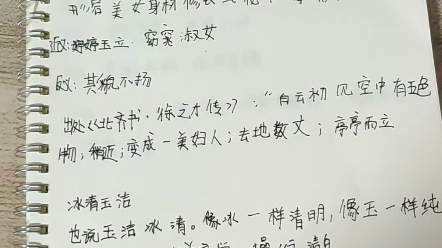 形容美女身材修长
近义:婷婷玉立 窈窕淑女
反义:其貌不扬
出处《北齐书·徐之才传》:"白云初见空中有五色
物,稍近,变成一美妇人;去地数丈;亭亭而立
冰清玉洁
也说玉洁冰清。像冰一样清明,像玉一样纯